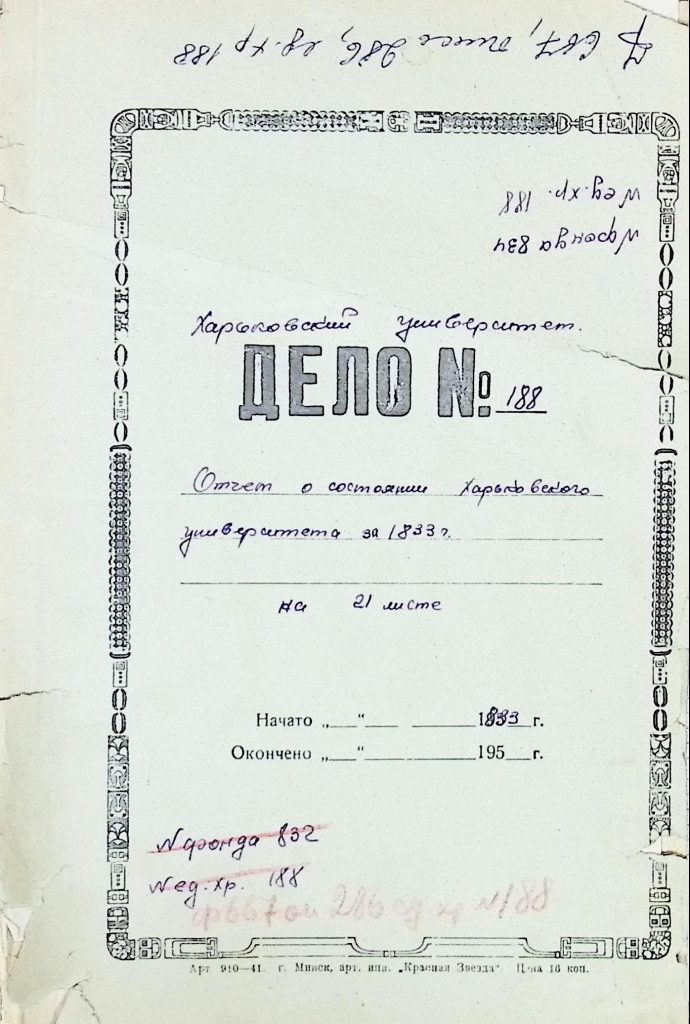 Ф 667, опись 286, ед. хр 188
№ ед. хр. 188
№ фонда 834
Харьковский университет.
ДЕЛО № 188
Отчет о состоянии Харьковского
университета за 1833 г.
на 21 листе
Начато „__“ __ ____ 1833 г.
Окончено „__“ __ ____ 195__ г.
№ фонда 832
№ ед. хр. 188
ф667 оп 286 ед хр №188
Арт. 910—41. г. Минск, арт. инв. „Красная Звезда“. Цена 16 коп.